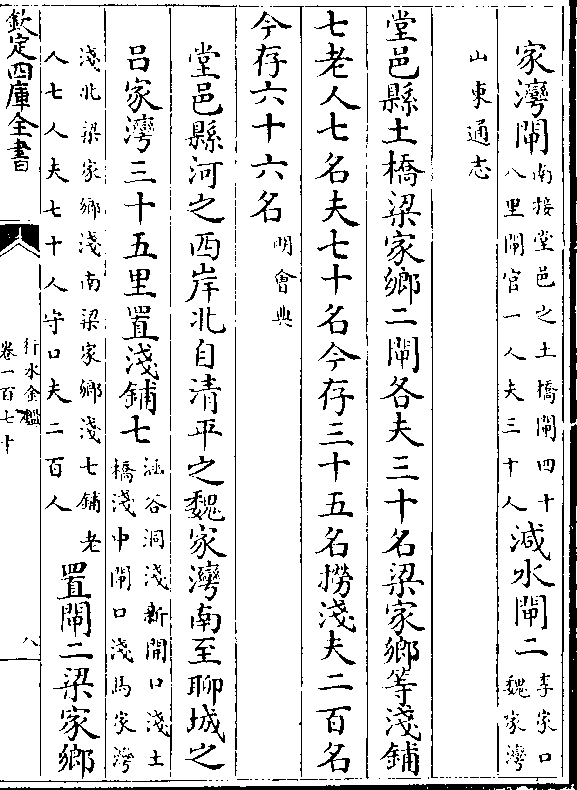 家灣閘南接堂邑之土橋閘四十
八里閘官一人夫三十人減水閘二李家口
魏家灣
山東通志
堂邑縣土橋梁家鄉二閘各夫三十名梁家鄉等淺鋪
七老人七名夫七十名今存三十五名撈淺夫二百名
今存六十六名明會典
堂邑縣河之西岸北自清平之魏家灣南至聊城之
呂家灣三十五里置淺鋪七涵谷洞淺新開口淺土
橋淺中閘口淺馬家灣
淺北梁家鄉淺南梁家鄉淺七鋪老
人七人夫七十人守口夫二百人置閘二梁家鄉
欽定四庫全書
行水金鑑
卷一百七十
八